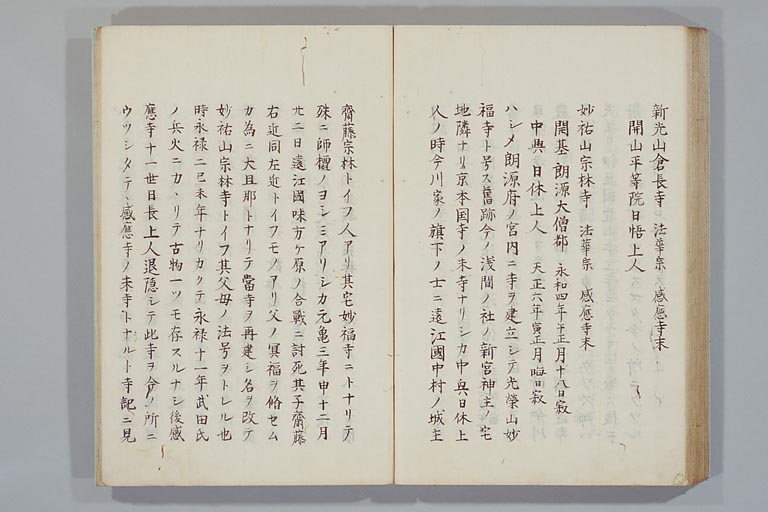 新光山倉長寺 法華宗 感應寺末
開山平等院日悟上人
妙祐山宗林寺 法華宗 感應寺末
開基 朗源大僧都 永和四年午正月十八日寂
中興日休上人 天正六年寅正月晦日寂
ハシメ朗源府ノ宮内ニ寺ヲ建立シテ光榮山妙
福寺ト号ス舊跡今ノ浅間ノ社ノ新宮神主ノ宅
地隣ナリ京本国寺ノ末寺ナリシカ中興日休上
人ノ時今川家ノ旗下ノ士ニ遠江國中村ノ城主
齋藤宗林トイフ人アリ其宅妙福寺ニトナリテ
殊ニ師檀ノヨシミアリシカ元亀三年申十二月
廿二日遠江國味方ケ原ノ合戰ニ討死其子齋藤
右近同左近トイフモノアリ父ノ冥福ヲ脩セム
カ為ニ大旦那トナリテ當寺ヲ再建シ名ヲ改テ
妙祐山宗林寺トイフ其父母ノ法号ヲトレル也
時永禄二己未年ナリカクテ永禄十一年武田氏
ノ兵火ニカヽリテ古物一ツモ存スルナシ後感
應寺十一世日長上人退隠シテ此寺ヲ今ノ所ニ
ウツシタテ、感應寺ノ末寺トナルト寺記ニ見